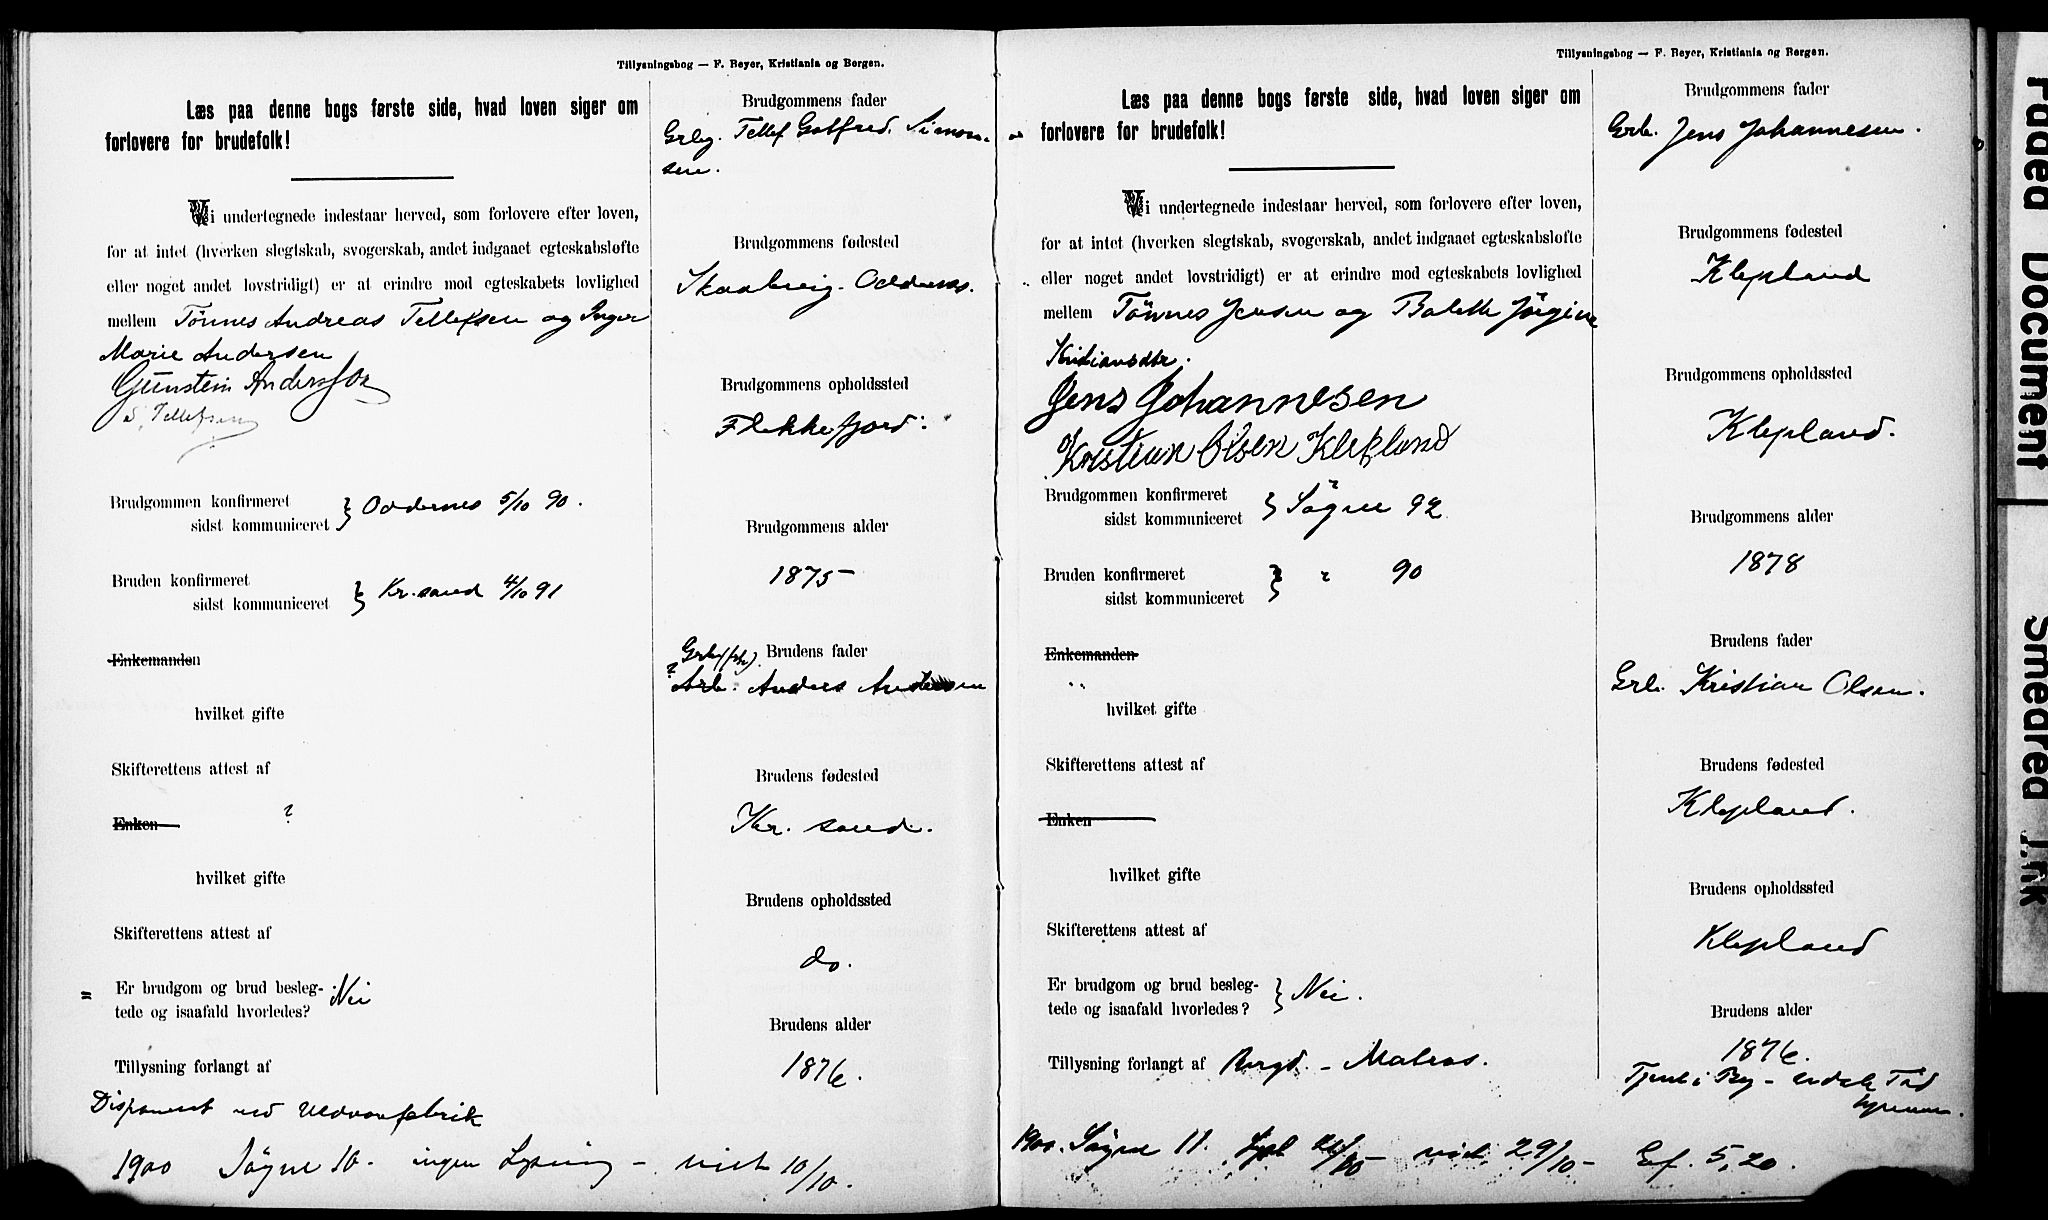 Tillysningsbog — F. Beyer, Kristiania og Bergen.
Læs paa denne bogs første side, hvad loven siger om
forlovere for brudefolk!
Vi undertegnede indestaar herved, som forlovere efter loven,
for at intet (hverken slegtskab, svogerskab, andet indgaaet egteskabsløfte
eller noget andet lovstridigt) er at erindre mod egteskabets lovlighed
mellem Tönnes Andreas Tellefsen og Inger
Marie Andersen
Gunstein Anderssen
S. Tellefsen
Brudgommen konfirmeret
sidst kommuniceret } Oddernes 5/10 90.
Bruden konfirmeret
sidst kommuniceret } Kr.sand 4/10 91
Enkemanden
hvilket gifte
Skifterettens attest af
Enken ?
hvilket gifte
Skifterettens attest af
= Er brudgom og brud besleg-
tede og isaafald hvorledes? Nei
Tillysning forlangt af
Disponent ved Uldvarefabrik
1900 Søgne 10. ingen Lysning – viet 10/10.
Brudgommens fader
Grbg. Tellef Gotfred Simon-
sen.
Brudgommens fødested
Skaalevig. Oddernes.
Brudgommens opholdssted
Flekkefjord.
Brudgommens alder
1875
Brudens fader
? Arb. Anders Andersen
Brudens fødested
Kr. sand.
Brudens opholdssted
do.
Brudens alder
1876.
Tillysningsbog — F. Beyer, Kristiania og Bergen.
Læs paa denne bogs første side, hvad loven siger om
forlovere for brudefolk!
Vi undertegnede indestaar herved, som forlovere efter loven,
for at intet (hverken slegtskab, svogerskab, andet indgaaet egteskabsløfte
eller noget andet lovstridigt) er at erindre mod egteskabets lovlighed
mellem Tönnes Jensen og Bolette Jörgine
Kristiansdtr.
Jens Johannesen
Kristian Olsen Klepland
Brudgommen konfirmeret
sidst kommuniceret } Sögne 92
Bruden konfirmeret
sidst kommuniceret } " 90
Enkemanden
hvilket gifte
Skifterettens attest af
Enken
hvilket gifte
Skifterettens attest af
Er brudgom og brud besleg-
tede og isaafald hvorledes? } Nei.
Tillysning forlangt af Brgd. – Matros.
1900. Søgne 11. Lyst 21/10 – viet 29/10 – 5,20.
Brudgommens fader
Grb. Jens Johannesen.
Brudgommens fødested
Klepland
Brudgommens opholdssted
Klepland.
Brudgommens alder
1878
Brudens fader
Grb. Kristian Olsen.
Brudens fødested
Klepland.
Brudens opholdssted
Klepland
Brudens alder
1876.
Tjent i By –
Faded Document
Smeared Ink